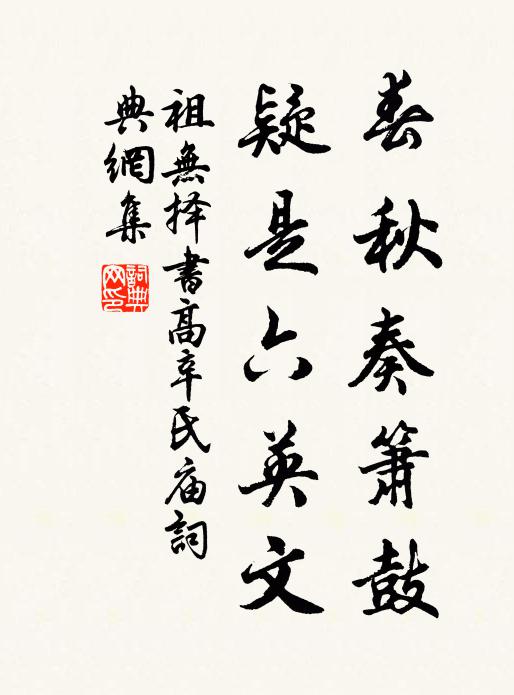 春秋奏箫鼓
疑是六英文
祖無择書高辛氏庙詞
典網集
詞典
网印